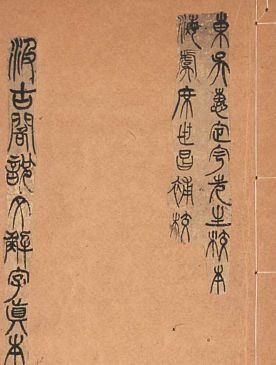 東吳惠定宇先生校本
海虞席世昌補校
汲古閣說文解字真本